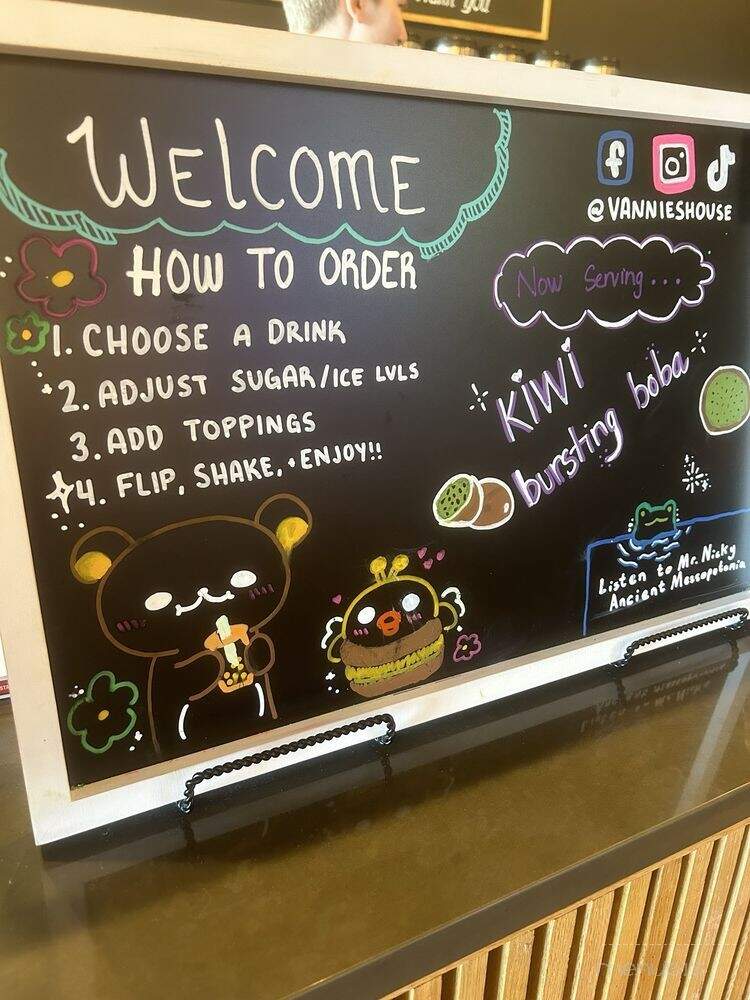 you
WELCOME
HOW TO ORDER
1. CHOOSE A DRINK
2. ADJUST SUGAR/ICE LVLS
3. ADD TOPPINGS
4. FLIP, SHAKE, + ENJOY!!
@VANNIESHOUSE
Now Serving...
KIWI
bursting boba
Listen to Mr. Nicky
Ancient Mesopotamia